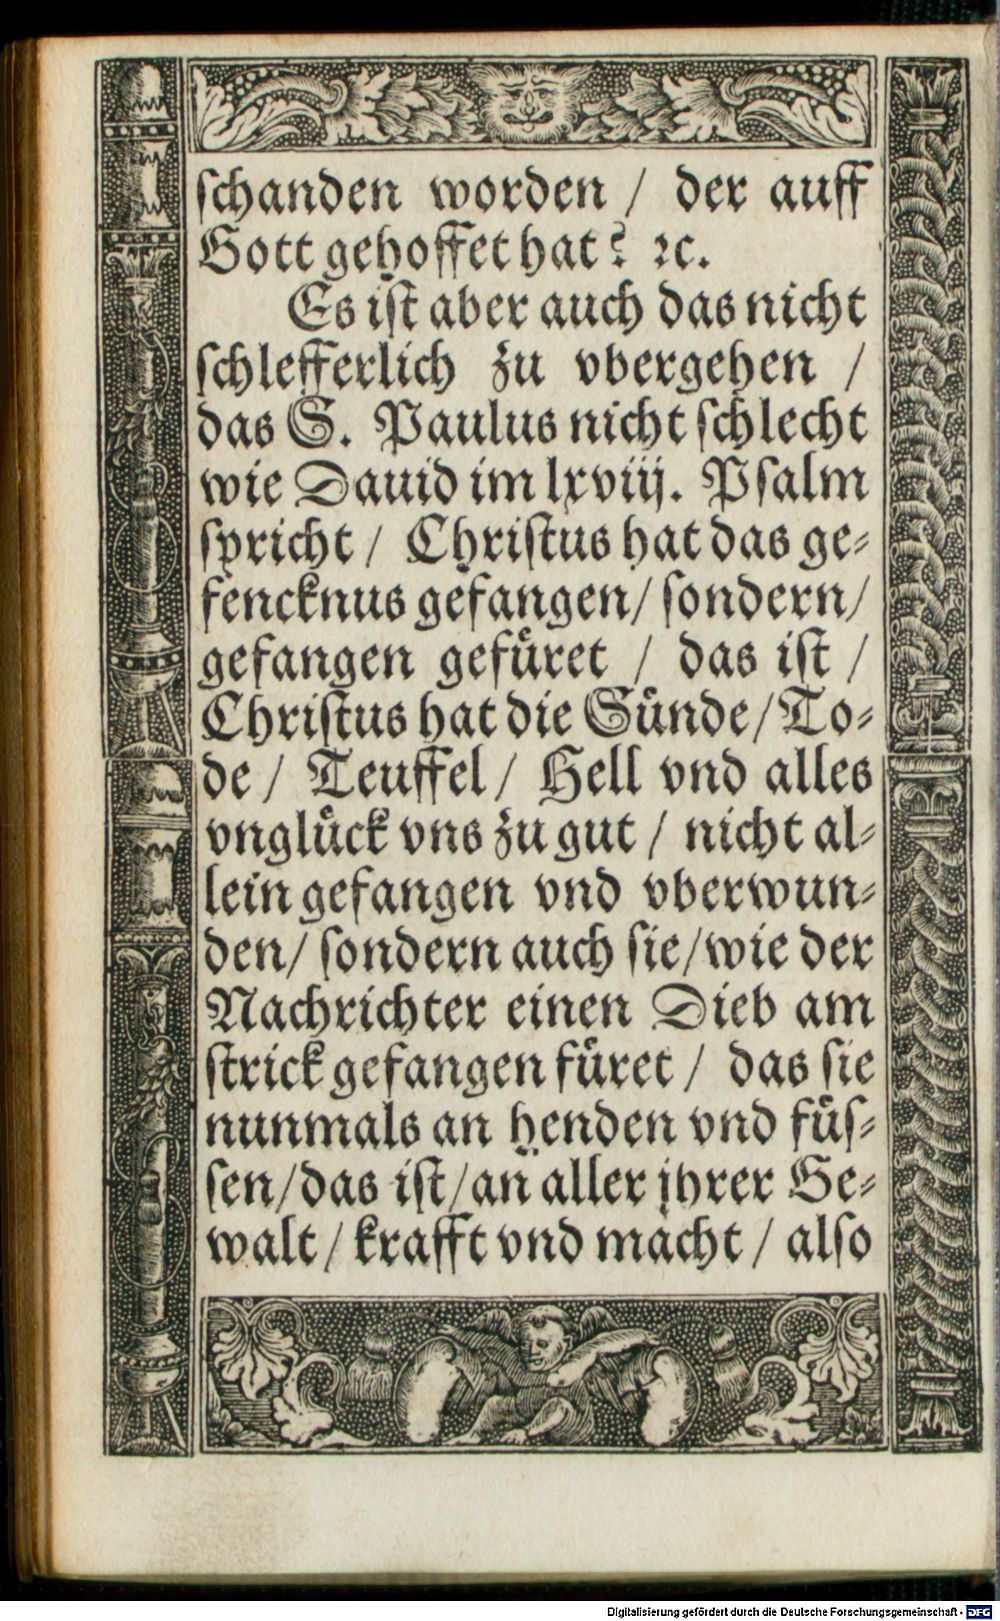 schanden worden / der auff
Gott gehoffet hat? ꝛc.
Es ist aber auch das nicht
schlefferlich zu vbergehen /
das S. Paulus nicht schlecht
wie Dauid im lxviij. Psalm
spricht / Christus hat das ge-
fencknus gefangen/ sondern/
gefangen gefüret / das ist /
Christus hat die Sünde/ To-
de / Teuffel / Hell vnd alles
vnglück vns zu gut / nicht al-
lein gefangen vnd vberwun-
den/ sondern auch sie/ wie der
Nachrichter einen Dieb am
strick gefangen füret / das sie
nunmals an henden vnd füs-
sen/ das ist/ an aller jhrer Ge-
walt / krafft vnd macht / also
Digitalisierung gefördert durch die Deutsche Forschungsgemeinschaft - DFG